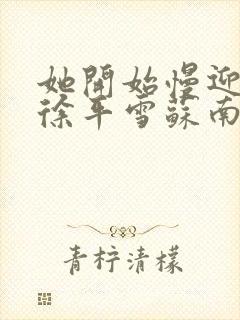 她開始慢迎
徐平雪蘇南
青柠清檬